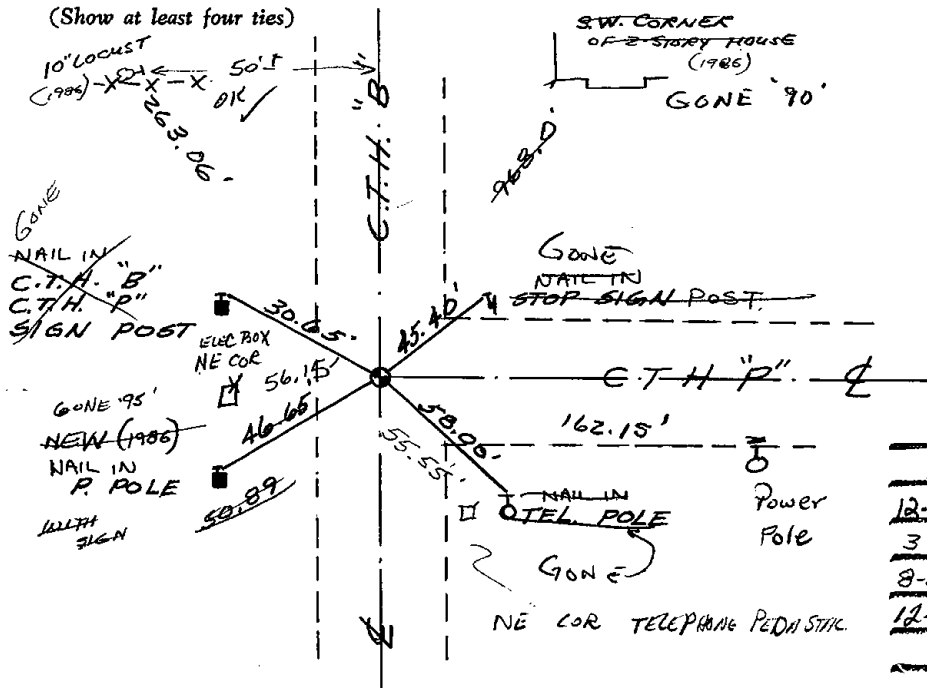 (Show at least four ties)
10" LOCUST
(1986)
50'±
OK
263.06'
C.T.H. "B"
S.W. CORNER
OF 2-STORY HOUSE
(1986)
GONE '90'
968.0'
GONE
NAIL IN
C.T.H. "B"
C.T.H. "P"
SIGN POST
30.65'
45.40'
GONE
NAIL IN
STOP SIGN POST.
ELEC BOX
NE COR
56.15'
C T H "P"
GONE '95'
NEW (1986)
NAIL IN
P. POLE
46.65
59.89
SIGN
58.90'
55.55'
162.15'
Power
Pole
NAIL IN
TEL. POLE
GONE
NE COR TELEPHONE PEDASTAL
12-
3
8-
12-